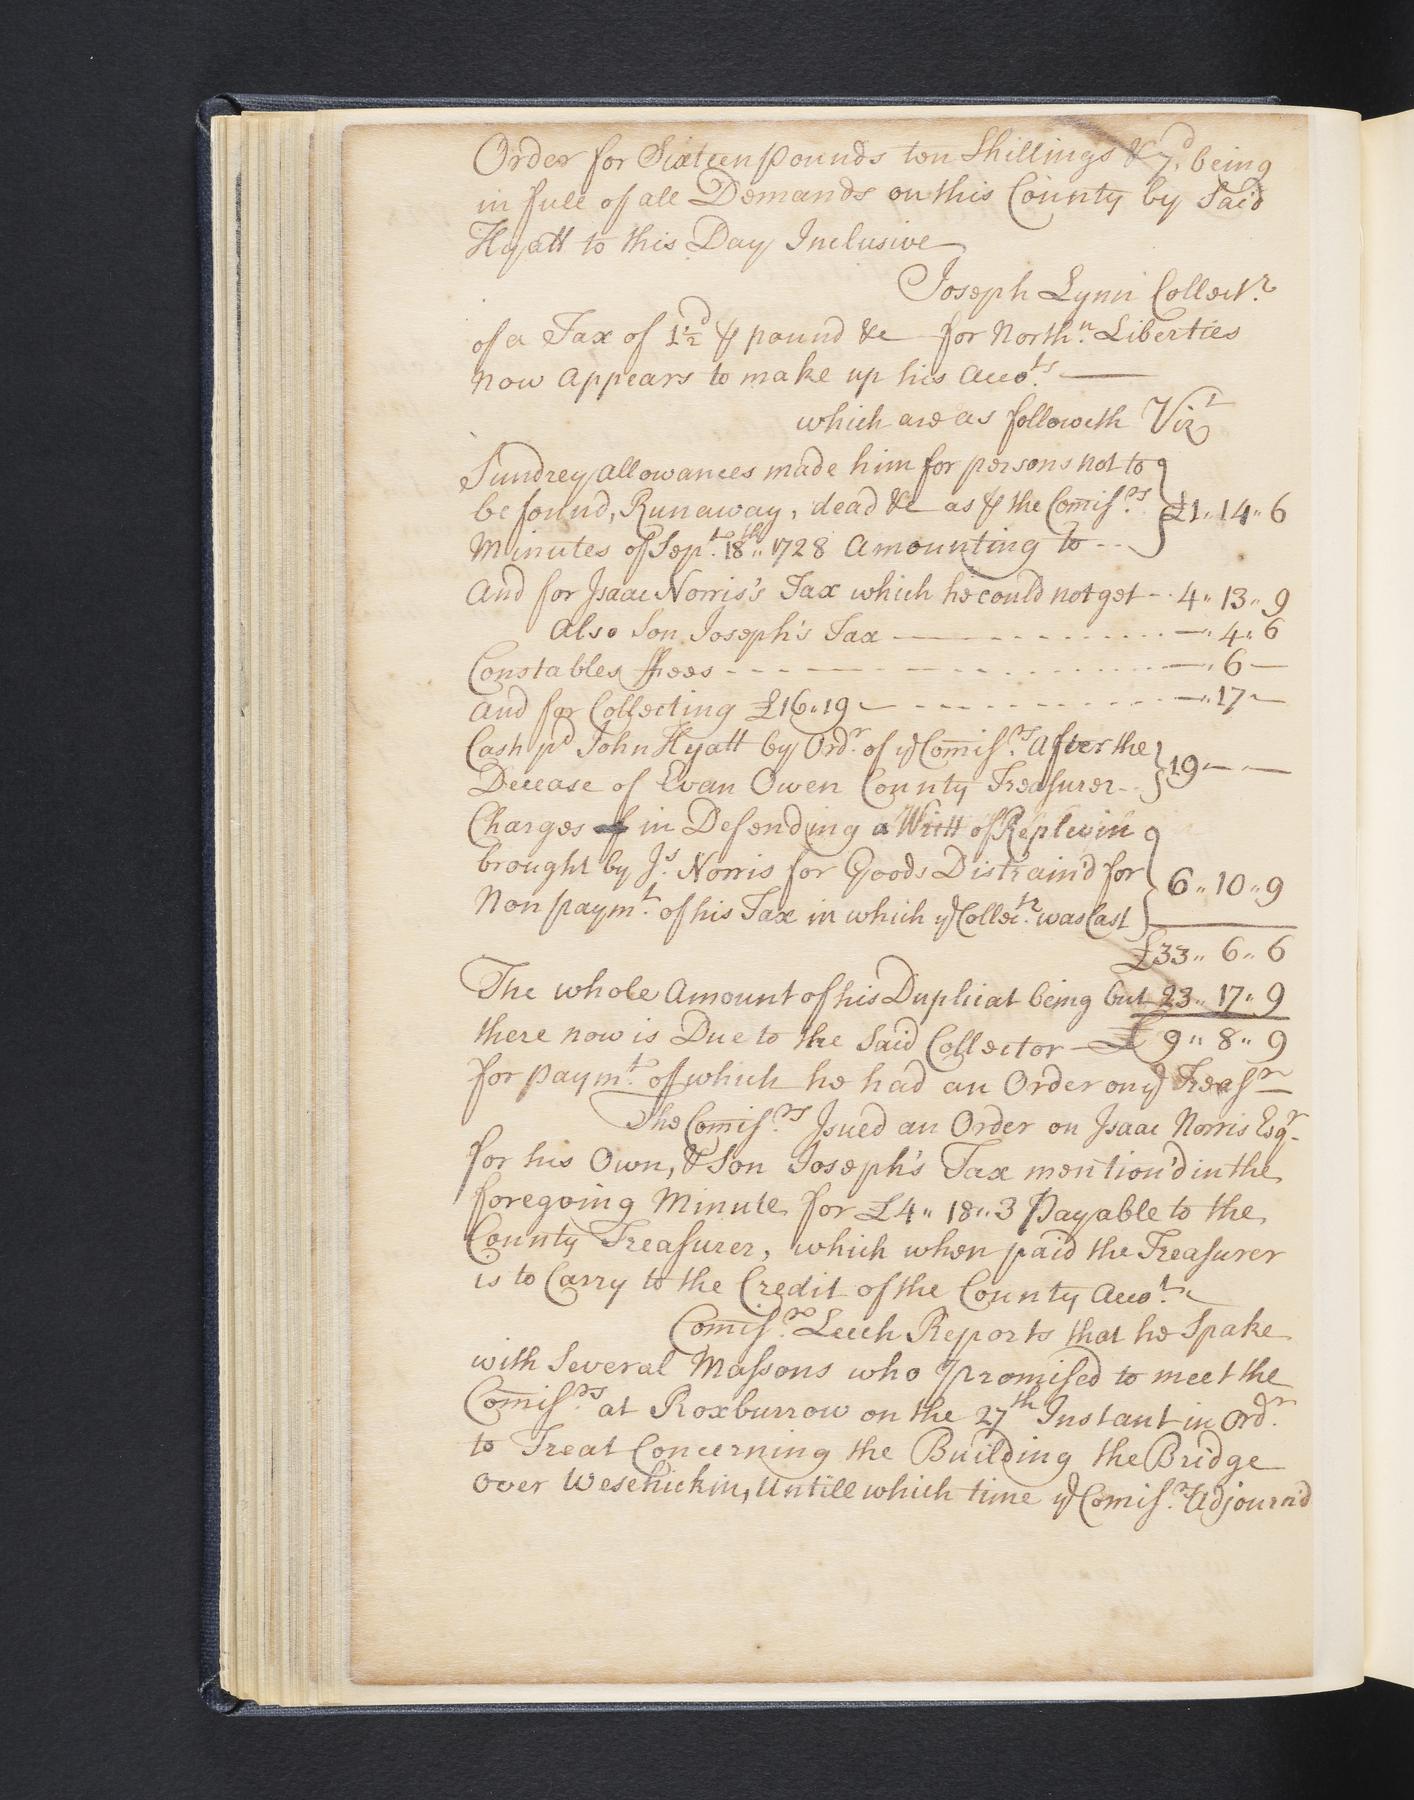 Order for Sixteen pounds ten Shillings & 7d. being
in full of all Demands on this County by Said
Hyatt to this Day Inclusive
Joseph Lynn Collectr.
of a Tax of 1½d ⅌ pound &c for Northn. Liberties
now appears to make up his Accots.
which are as followeth Vizt
Sundrey allowances made him for persons not to
be found, Runaway, dead &c as ⅌ the Comiſrs. £1,, 14,, 6
Minutes of Sept. 18th,, 1728 Amounting to
And for Isaac Norris's Tax which he could not get 4,, 13,, 9
Also Son Joseph's Tax —,, 4,, 6
Constables ffees —,, 6 —
and for Collecting £16,, 19 —,, 17 —
Cash pd John Hyatt by Ordr. of ye Comiſrs. After the
Decease of Evan Owen County Treaſurer 19 — —
Charges in Defending a Writt of Replevin
brought by Js. Norris for Goods Distrain'd for 6,, 10,, 9
Non paymt. of his Tax in which ye Collectr. was Cast
£33,, 6,, 6
The whole Amount of his Duplicat being but 23,, 17,, 9
there now is Due to the Said Collector £ 9,, 8,, 9
for paymt. of which he had an Order on ye Treaſr
The Comiſrs. Isued an Order on Isaac Norris Esqr
for his Own, & Son Joseph's Tax mention'd in the
foregoing Minute for £4,, 18,, 3 Payable to the
County Treaſurer, which when paid the Treaſurer
is to Carry to the Credit of the County Accot.
Comiſr. Leech Reports that he Spake
with Several Maſsons who promiſed to meet the
Comiſrs. at Roxburrow on the 27th Instant in Ordr.
to Treat Concerning the Building the Bridge
over Wesehickin, Untill which time ye Comiſrs. Adjourn'd